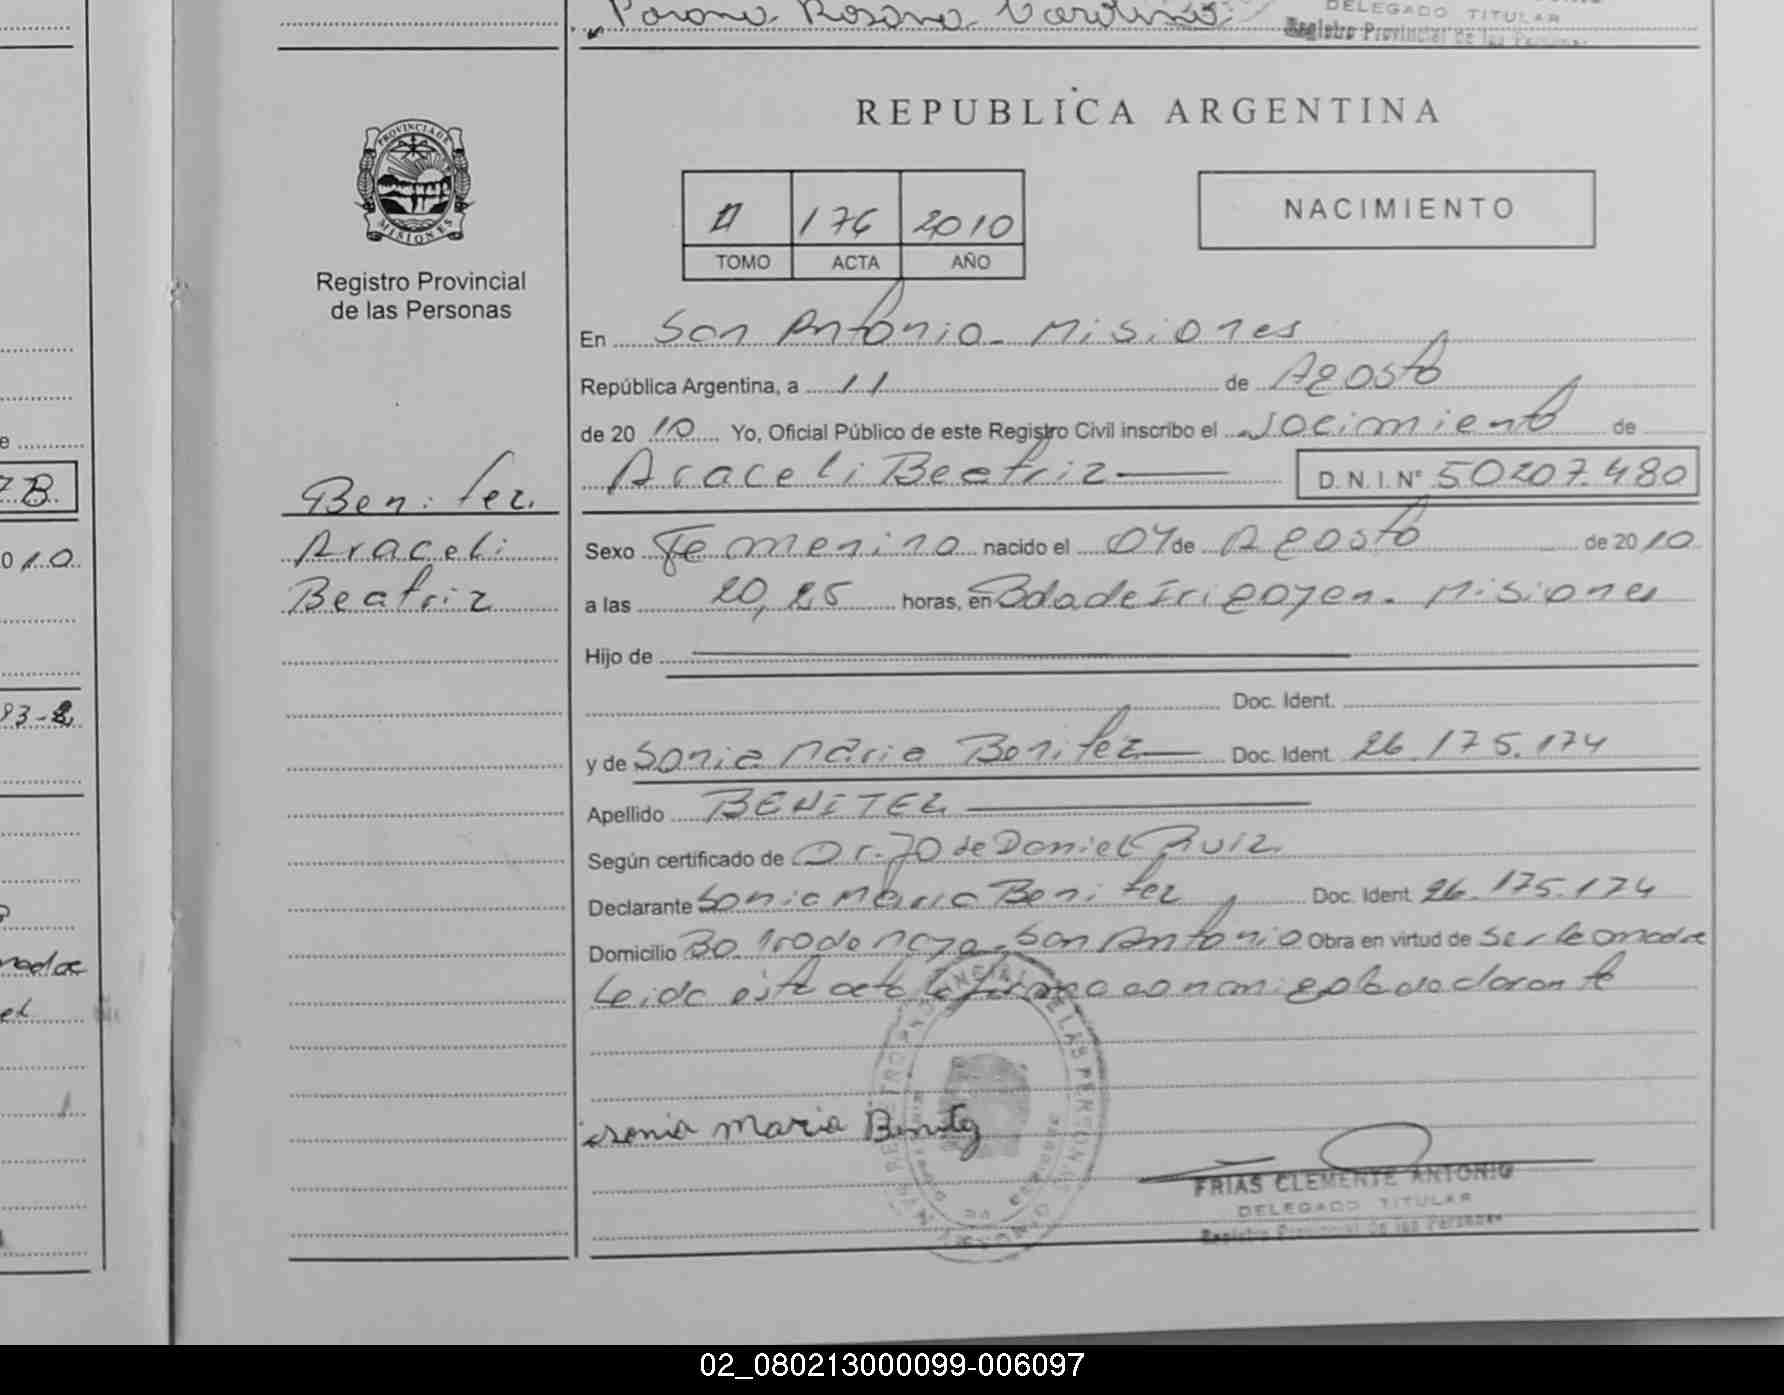 Rosana Carolina
DELEGADO TITULAR
Registro Provincial de las Personas
REPUBLICA ARGENTINA
PROVINCIA DE
MISIONES
Registro Provincial
de las Personas
II 176 2010
TOMO ACTA AÑO
NACIMIENTO
En San Antonio - Misiones
República Argentina, a 11 de Agosto
de 2010 Yo, Oficial Público de este Registro Civil inscribo el Nacimiento de
Araceli Beatriz D.N.I. Nº 50207.480
Benitez
Araceli
Beatriz
Sexo Femenino nacido el 04 de Agosto de 2010
a las 20,25 horas, en Bdo de Irigoyen - Misiones
Hijo de
Doc. Ident.
y de Sonia Maria Benitez Doc. Ident. 26.175.174
Apellido BENITEZ
Según certificado de Dr. Jo de Daniel Ruiz
Declarante Sonia Maria Benitez Doc. Ident. 26.175.174
Domicilio Bo. San Antonio Obra en virtud de ser la madre
Leida este acta la firma conmigo la declarante
sonia maria Benitez
FRIAS CLEMENTE ANTONIO
DELEGADO TITULAR
Registro Provincial de las Personas
7B.
010
93-2
madre
02_080213000099-006097